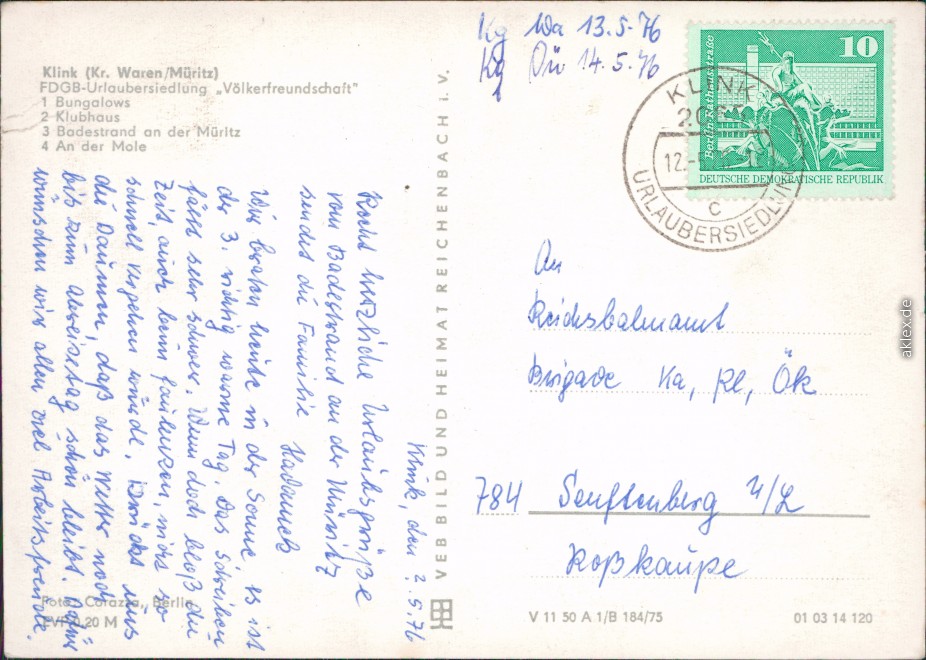 Klink (Kr. Waren/Müritz)
FDGB-Urlaubersiedlung „Völkerfreundschaft"
1 Bungalows
2 Klubhaus
3 Badestrand an der Müritz
4 An der Mole
Klink, den 2.5.76
Recht herzliche Urlaubsgrüße
vom Badestrand an der Müritz
sendet die Familie
Wir braten heute in der Sonne, es ist
der 3. richtig warme Tag. Das Schreiben
fällt sehr schwer. Wenn doch bloß die
Zeit, auch beim faulenzen, nicht so
schnell vergehen würde. Drückt uns
die Daumen, daß das Wetter noch
bis zum Abreisetag schön bleibt. Dafür
wünschen wir allen viel Arbeitsfreude.
Foto: Corazza, Berlin
EVP 0,20 M
VEB BILD UND HEIMAT REICHENBACH i. V.
Kg Wa 13.5.76
Kg Dü 14.5.76
10
Berlin, Rathausstraße
DEUTSCHE DEMOKRATISCHE REPUBLIK
KLINK
12.
C
URLAUBERSIEDLUNG
An
Reichsbahnamt
Brigade Ka, Kl, Ök
784 Senftenberg N/L
Roßkaupe
V 11 50 A 1/B 184/75
01 03 14 120
aklex.de